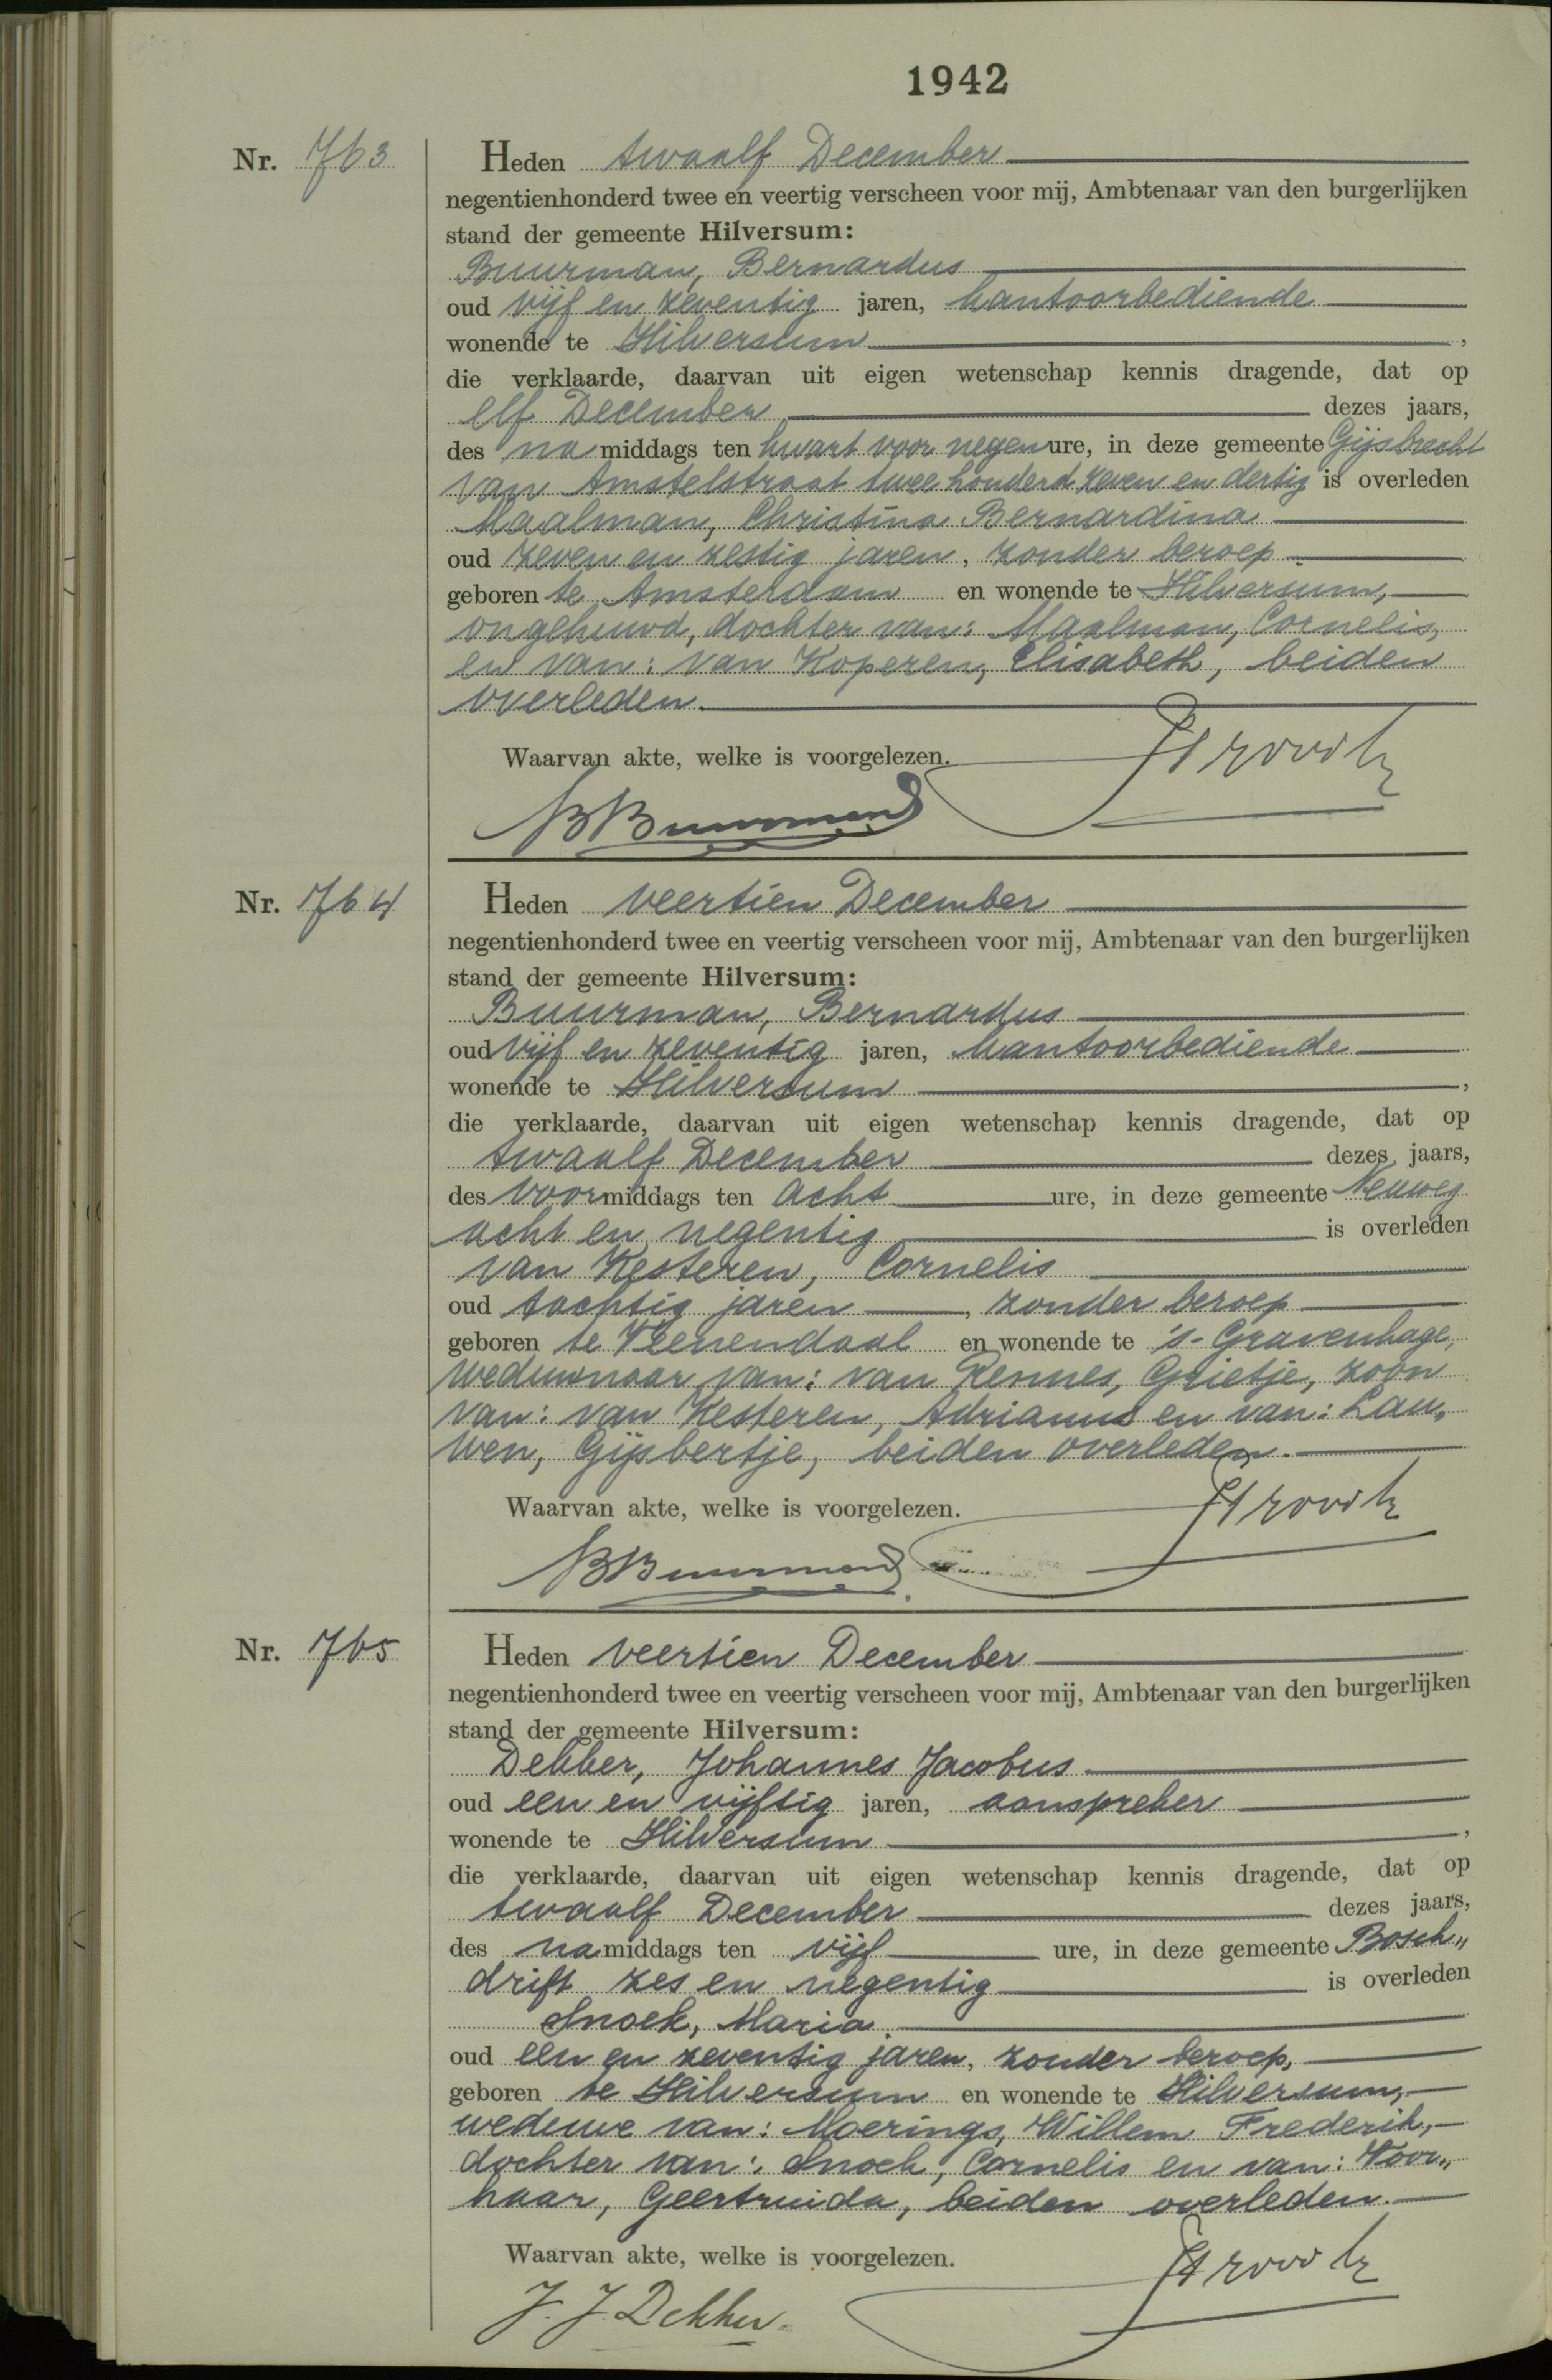 1942
Nr. 763
Heden twaalf December
negentienhonderd twee en veertig verscheen voor mij, Ambtenaar van den burgerlijken
stand der gemeente Hilversum:
Buurman, Bernardus
oud vijf en zeventig jaren, kantoorbediende
wonende te Hilversum,
die verklaarde, daarvan uit eigen wetenschap kennis dragende, dat op
elf December dezes jaars,
des namiddags ten kwart voor negen ure, in deze gemeente Gijsbrecht
van Amstelstraat twee honderd zeven en dertig is overleden
Maalman, Christina Bernardina
oud zeven en zestig jaren, zonder beroep
geboren te Amsterdam en wonende te Hilversum,
ongehuwd, dochter van: Maalman, Cornelis,
en van: van Koperen, Elisabeth, beiden
overleden.
Waarvan akte, welke is voorgelezen.
BBuurman
Nr. 764
Heden veertien December
negentienhonderd twee en veertig verscheen voor mij, Ambtenaar van den burgerlijken
stand der gemeente Hilversum:
Buurman, Bernardus
oud vijf en zeventig jaren, kantoorbediende
wonende te Hilversum,
die verklaarde, daarvan uit eigen wetenschap kennis dragende, dat op
twaalf December dezes jaars,
des voormiddags ten acht ure, in deze gemeente Neuweg
acht en negentig is overleden
van Kesteren, Cornelis
oud tachtig jaren, zonder beroep
geboren te Veenendaal en wonende te 's-Gravenhage,
weduwnaar van: van Rennes, Grietje, zoon
van: van Kesteren, Adrianus en van: Lau„
wen, Gijsbertje, beiden overleden.
Waarvan akte, welke is voorgelezen.
BBuurman
Nr. 765
Heden veertien December
negentienhonderd twee en veertig verscheen voor mij, Ambtenaar van den burgerlijken
stand der gemeente Hilversum:
Dekker, Johannes Jacobus
oud een en vijftig jaren, aanspreker
wonende te Hilversum,
die verklaarde, daarvan uit eigen wetenschap kennis dragende, dat op
twaalf December dezes jaars,
des namiddags ten vijf ure, in deze gemeente Bosch„
drift zes en negentig is overleden
Snoek, Maria
oud een en zeventig jaren, zonder beroep,
geboren te Hilversum en wonende te Hilversum,
weduwe van: Moerings, Willem Frederik,
dochter van: Snoek, Cornelis en van: Voor„
haar, Geertruida, beiden overleden.
Waarvan akte, welke is voorgelezen.
J. J. Dekker.